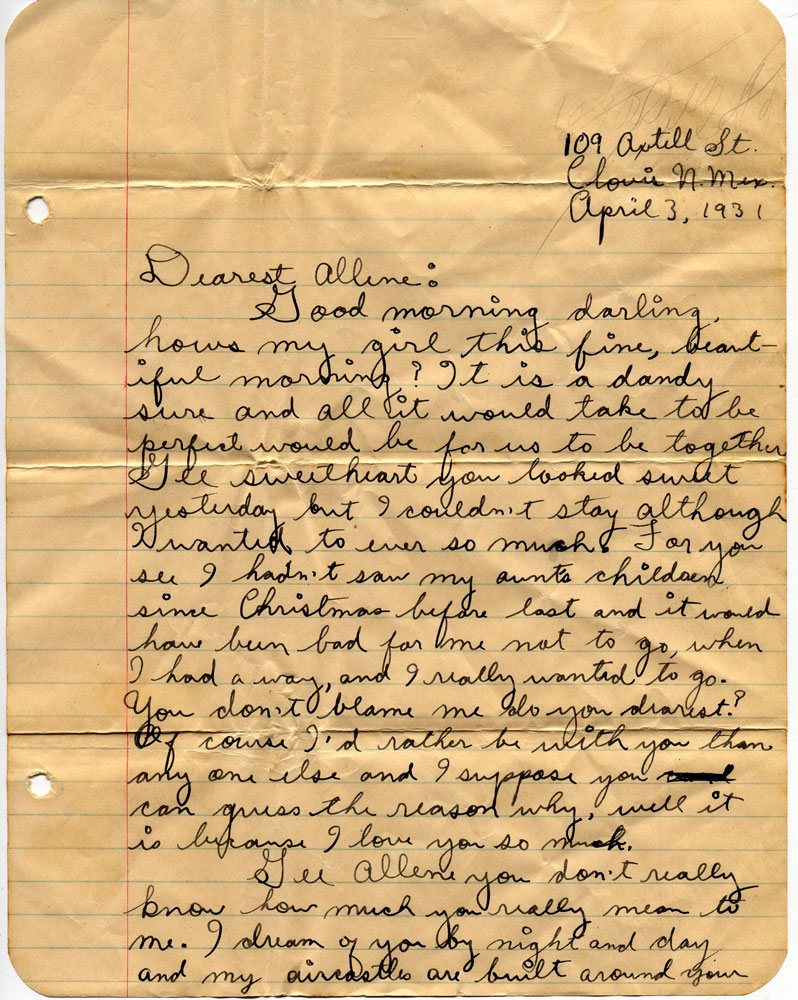 109 Axtell St.
Clovis N. Mex.
April 3, 1931
Dearest Allene:
Good morning darling,
hows my girl this fine, beaut-
iful morning? It is a dandy
sure and all it would take to be
perfect would be for us to be together
Gee sweetheart you looked sweet
yesterday but I couldn't stay although
I wanted to ever so much. For you
see I hadn't saw my aunts children
since Christmas before last and it would
have been bad for me not to go, when
I had a way, and I really wanted to go.
You don't blame me do you dearest?
Of course I'd rather be with you than
any one else and I suppose you
can guess the reason why, well it
is because I love you so much.
Gee Allene you don't really
know how much you really mean to
me. I dream of you by night and day
and my aircastles are built around your